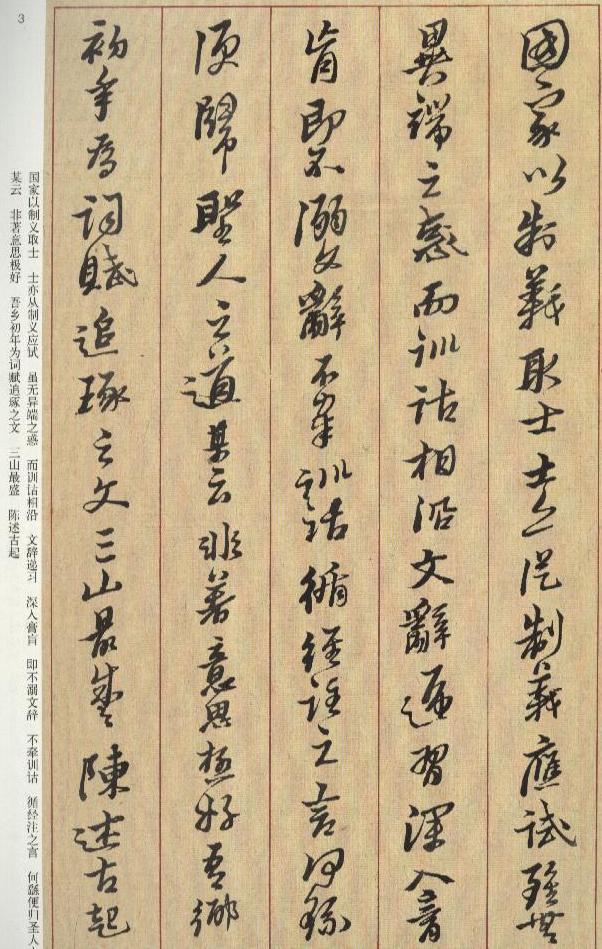 國家以制義取士士亦從制義應試雖無
異端之惑而訓詁相沿文辭遞習深入膏
肓即不溺文辭不牽訓詁循經註之言何繇
便歸聖人之道某云非著意思極好吾鄉
初年為詞賦追琢之文三山最盛陳述古起
3
国家以制义取士 士亦从制义应试 虽无异端之惑 而训诂相沿 文辞递习 深入膏肓 即不溺文辞 不牵训诂 循经注之言 何繇便归圣人
某云 非著意思极好 吾乡初年为词赋追琢之文 三山最盛 陈述古起